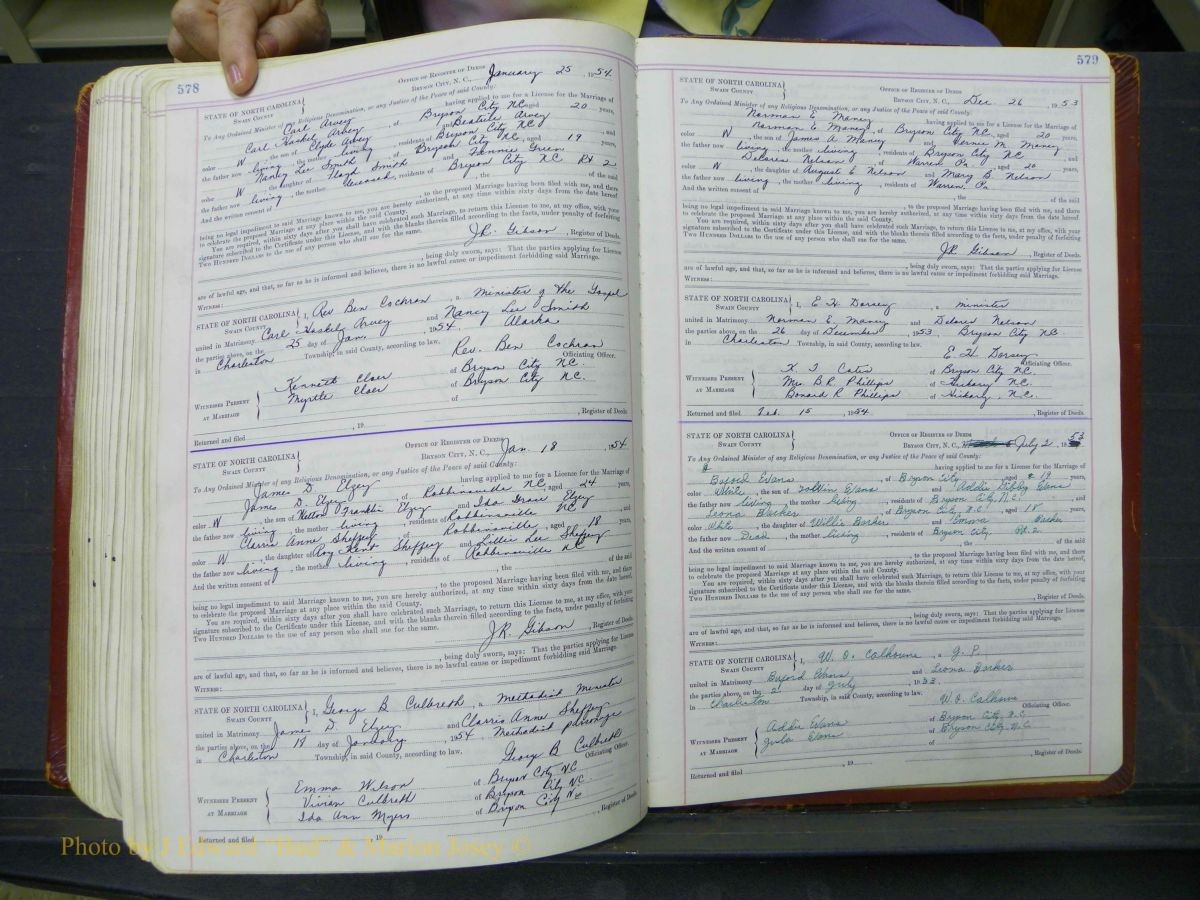 578
STATE OF NORTH CAROLINA
SWAIN COUNTY
OFFICE OF REGISTER OF DEEDS
BRYSON CITY, N. C., January 25 1954.
To Any Ordained Minister of any Religious Denomination, or any Justice of the Peace of said County:
Carl Arvey having applied to me for a License for the Marriage of
Carl Haskel Arvey, of Bryson City NC aged 20 years,
color W the son of Clyde Arvey and Beatrice Arvey
the father now living, the mother living, residents of Bryson City NC, and
Nancy Lee Smith of Bryson City NC, aged 19 years,
color W, the daughter of Floyd Smith and Fannie Green
the father now living, the mother deceased, residents of Bryson City NC Rt 2
And the written consent of , the of the said
, to the proposed Marriage having been filed with me, and there
being no legal impediment to said Marriage known to me, you are hereby authorized, at any time within sixty days from the date hereof,
to celebrate the proposed Marriage at any place within the said County.
You are required, within sixty days after you shall have celebrated such Marriage, to return this License to me, at my office, with your
signature subscribed to the Certificate under this License, and with the blanks therein filled according to the facts, under penalty of forfeiting
TWO HUNDRED DOLLARS to the use of any person who shall sue for the same.
J.R. Gibson, Register of Deeds.
, being duly sworn, says: That the parties applying for License
are of lawful age, and that, so far as he is informed and believes, there is no lawful cause or impediment forbidding said Marriage.
WITNESS:
STATE OF NORTH CAROLINA
SWAIN COUNTY
I, Rev Ben Cochran, a Minister of the Gospel
united in Matrimony Carl Haskel Arvey and Nancy Lee Smith
the parties above, on the 25 day of Jan., 1954. Alaska
in Charleston Township, in said County, according to law.
Rev. Ben Cochran
Officiating Officer.
WITNESSES PRESENT AT MARRIAGE
Kenneth Cloer of Bryson City NC.
Myrtle Cloer of Bryson City NC.
of
Returned and filed , 19 , Register of Deeds.
STATE OF NORTH CAROLINA
SWAIN COUNTY
OFFICE OF REGISTER OF DEEDS
BRYSON CITY, N. C., Jan. 18 1954
To Any Ordained Minister of any Religious Denomination, or any Justice of the Peace of said County:
James D. Elzey having applied to me for a License for the Marriage of
James D. Elzey, of Robbinsville NC, aged 24 years,
color W, the son of Franklin Elzey and Ida Grace Elzey
the father now living, the mother living, residents of Robbinsville NC, and
Clarris Anne Sheffey of Robbinsville, aged 18 years,
color W, the daughter of Roy Kent Sheffey and Lillie Lee Sheffey
the father now living, the mother living, residents of Robbinsville NC
And the written consent of , the of the said
, to the proposed Marriage having been filed with me, and there
being no legal impediment to said Marriage known to me, you are hereby authorized, at any time within sixty days from the date hereof,
to celebrate the proposed Marriage at any place within the said County.
You are required, within sixty days after you shall have celebrated such Marriage, to return this License to me, at my office, with your
signature subscribed to the Certificate under this License, and with the blanks therein filled according to the facts, under penalty of forfeiting
TWO HUNDRED DOLLARS to the use of any person who shall sue for the same.
J.R. Gibson, Register of Deeds.
, being duly sworn, says: That the parties applying for License
are of lawful age, and that, so far as he is informed and believes, there is no lawful cause or impediment forbidding said Marriage.
WITNESS:
STATE OF NORTH CAROLINA
SWAIN COUNTY
I, George B Culbreth, a Methodist Minister
united in Matrimony James D. Elzey and Clarris Anne Sheffey
the parties above, on the 18 day of January, 1954 Methodist parsonage
in Charleston Township, in said County, according to law.
George B Culbreth
Officiating Officer.
WITNESSES PRESENT AT MARRIAGE
Emma Wilson of Bryson City NC
Vivian Culbreth of Bryson City NC.
Ida Ann Myers of Bryson City NC
Returned and filed , 19 , Register of Deeds.
579
STATE OF NORTH CAROLINA
SWAIN COUNTY
OFFICE OF REGISTER OF DEEDS
BRYSON CITY, N. C., Dec 26, 1953
To Any Ordained Minister of any Religious Denomination, or any Justice of the Peace of said County:
Norman E. Maney having applied to me for a License for the Marriage of
Norman E. Maney, of Bryson City NC, aged 20 years,
color W, the son of James A Maney and Vernie M. Maney
the father now living, the mother living, residents of Bryson City NC, and
Delores Nelson of Warren, Pa., aged 20 years,
color W, the daughter of August E Nelson and Mary B. Nelson
the father now living, the mother living, residents of Warren, Pa
And the written consent of , the of the said
, to the proposed Marriage having been filed with me, and there
being no legal impediment to said Marriage known to me, you are hereby authorized, at any time within sixty days from the date hereof,
to celebrate the proposed Marriage at any place within the said County.
You are required, within sixty days after you shall have celebrated such Marriage, to return this License to me, at my office, with your
signature subscribed to the Certificate under this License, and with the blanks therein filled according to the facts, under penalty of forfeiting
TWO HUNDRED DOLLARS to the use of any person who shall sue for the same.
JR Gibson, Register of Deeds.
, being duly sworn, says: That the parties applying for License
are of lawful age, and that, so far as he is informed and believes, there is no lawful cause or impediment forbidding said Marriage.
WITNESS:
STATE OF NORTH CAROLINA
SWAIN COUNTY
I, E H Dorsey, a minister
united in Matrimony Norman E. Maney and Delores Nelson
the parties above, on the 26 day of December 1953, Bryson City NC.
in Charleston Township, in said County, according to law.
E. H. Dorsey
Officiating Officer.
WITNESSES PRESENT AT MARRIAGE
of Bryson City NC.
Mrs B R Phillips of Hickory NC.
Donard R Phillips of Hickory, N.C.
Returned and filed Feb. 15, 1954. , Register of Deeds.
STATE OF NORTH CAROLINA
SWAIN COUNTY
OFFICE OF REGISTER OF DEEDS
BRYSON CITY, N. C., July 2 1953
To Any Ordained Minister of any Religious Denomination, or any Justice of the Peace of said County:
having applied to me for a License for the Marriage of
Buford Evans, of Bryson City, aged 19 years,
color White, the son of Evans and Addie Sibley Evans
the father now living, the mother living, residents of Bryson City, N.C., and
Leona Barker of Bryson City, N.C, aged 18 years,
color White, the daughter of Willie Barker and Emma Barker
the father now Dead, the mother living, residents of Bryson City, Rt. 2.
And the written consent of , the of the said
, to the proposed Marriage having been filed with me, and there
being no legal impediment to said Marriage known to me, you are hereby authorized, at any time within sixty days from the date hereof,
to celebrate the proposed Marriage at any place within the said County.
You are required, within sixty days after you shall have celebrated such Marriage, to return this License to me, at my office, with your
signature subscribed to the Certificate under this License, and with the blanks therein filled according to the facts, under penalty of forfeiting
TWO HUNDRED DOLLARS to the use of any person who shall sue for the same.
, Register of Deeds.
, being duly sworn, says: That the parties applying for License
are of lawful age, and that, so far as he is informed and believes, there is no lawful cause or impediment forbidding said Marriage.
WITNESS:
STATE OF NORTH CAROLINA
SWAIN COUNTY
I, W. O. Calhoun, a J. P.
united in Matrimony Buford Evans and Leona Barker
the parties above, on the 2 day of July, 1953.
in Charleston Township, in said County, according to law.
W. O. Calhoun
Officiating Officer.
WITNESSES PRESENT AT MARRIAGE
Addie Evans of Bryson City, N.C
Zula Evans of Bryson City, N.C
of
Returned and filed , 19 , Register of Deeds.
Photo by J Edward "Bud" & Marion Josey ©